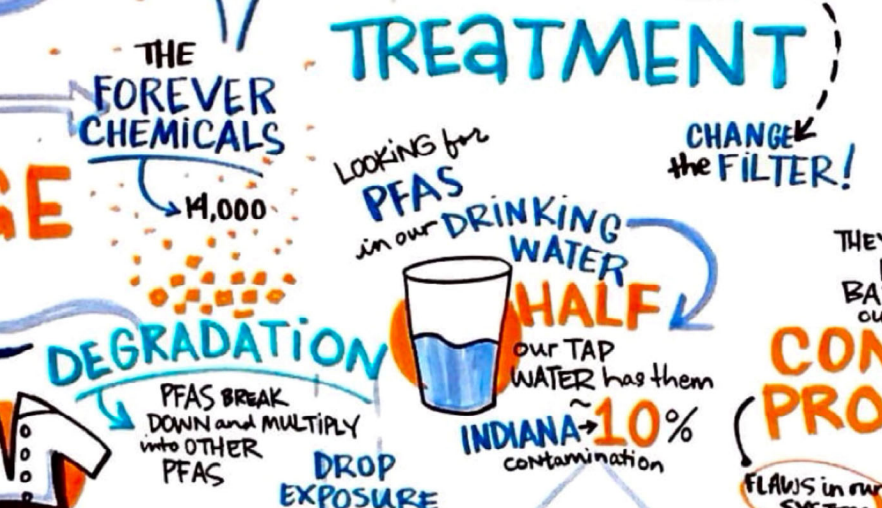 TREATMENT
THE
FOREVER
CHEMICALS
14,000
CHANGE
the FILTER!
LOOKING for
PFAS
in our DRINKING
WATER
HALF
our TAP
WATER has them
INDIANA → ~10%
contamination
DEGRADATION
PFAS BREAK
DOWN and MULTIPLY
into OTHER
PFAS
DROP
EXPOSURE
GE
THEY
BA
ou
CON
PRO
FLAWS in our